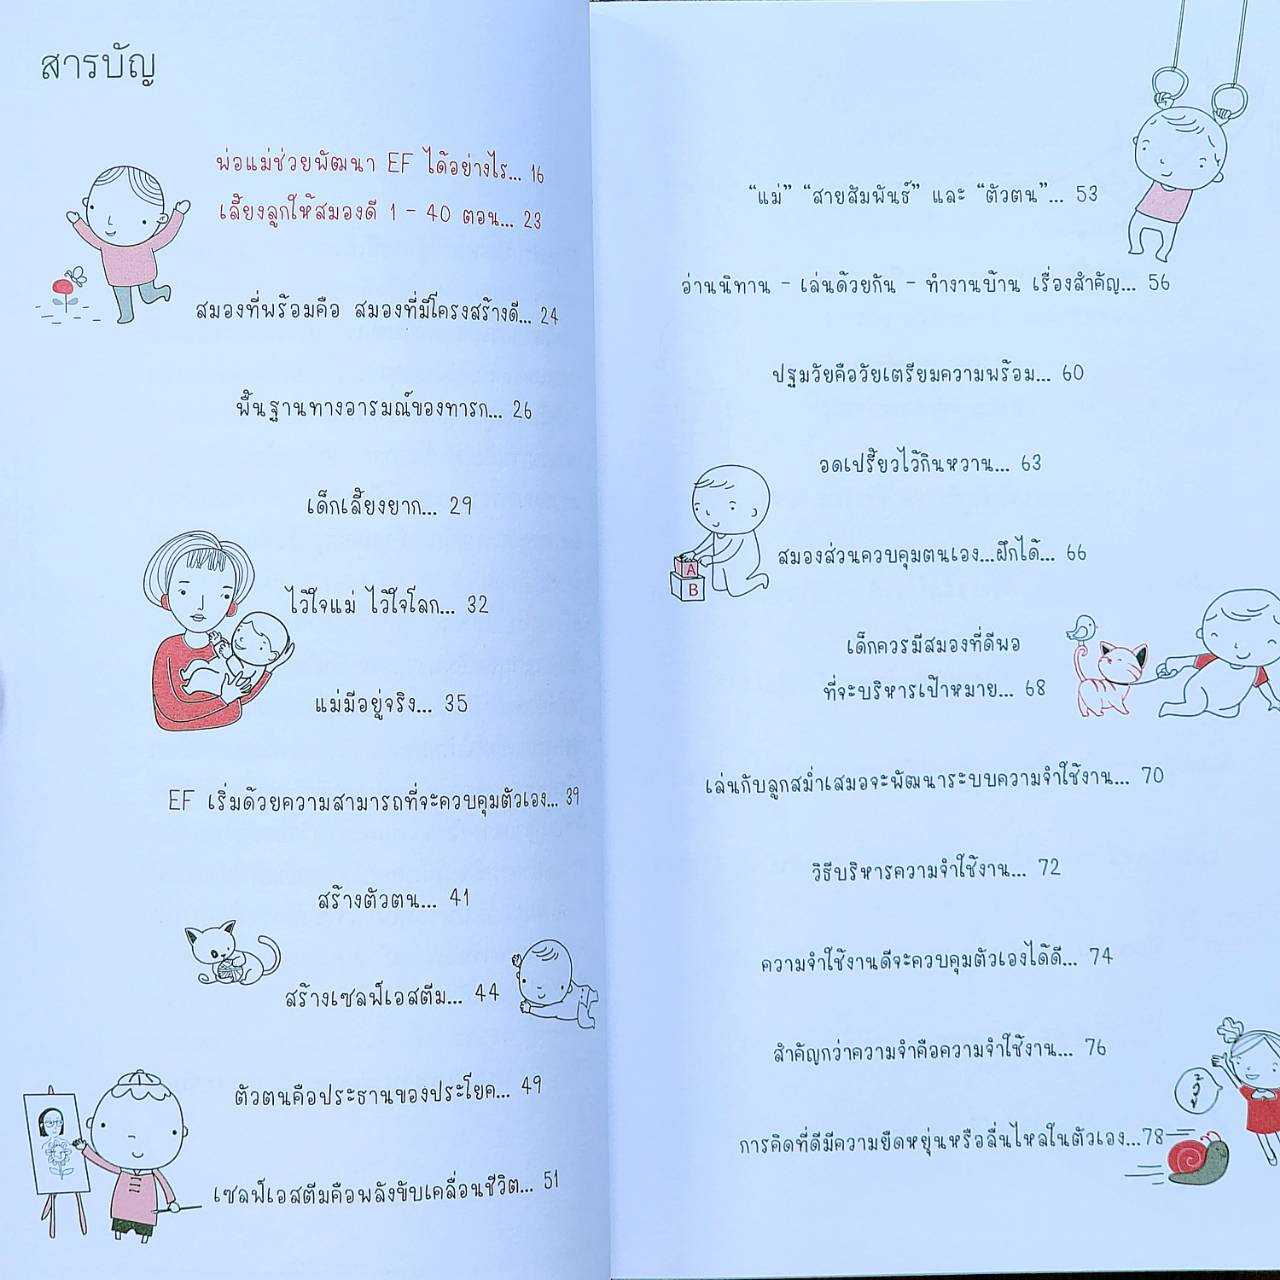 สารบัญ
พ่อแม่ช่วยพัฒนา EF ได้อย่างไร... 16
เลี้ยงลูกให้สมองดี 1 - 40 ตอน... 23
สมองที่พร้อมคือ สมองที่มีโครงสร้างดี... 24
พื้นฐานทางอารมณ์ของทารก... 26
เด็กเลี้ยงยาก... 29
ไว้ใจแม่ ไว้ใจโลก... 32
แม่มีอยู่จริง... 35
EF เริ่มด้วยความสามารถที่จะควบคุมตัวเอง... 39
สร้างตัวตน... 41
สร้างเซลฟ์เอสตีม... 44
ตัวตนคือประธานของประโยค... 49
เซลฟ์เอสตีมคือพลังขับเคลื่อนชีวิต... 51
“แม่” “สายสัมพันธ์” และ “ตัวตน”... 53
อ่านนิทาน - เล่นด้วยกัน - ทำงานบ้าน เรื่องสำคัญ... 56
ปฐมวัยคือวัยเตรียมความพร้อม... 60
อดเปรี้ยวไว้กินหวาน... 63
สมองส่วนควบคุมตนเอง...ฝึกได้... 66
A
B
เด็กควรมีสมองที่ดีพอ
ที่จะบริหารเป้าหมาย... 68
เล่นกับลูกสม่ำเสมอจะพัฒนาระบบความจำใช้งาน... 70
วิธีบริหารความจำใช้งาน... 72
ความจำใช้งานดีจะควบคุมตัวเองได้ดี... 74
สำคัญกว่าความจำคือความจำใช้งาน... 76
วู้
การคิดที่ดีมีความยืดหยุ่นหรือลื่นไหลในตัวเอง...78